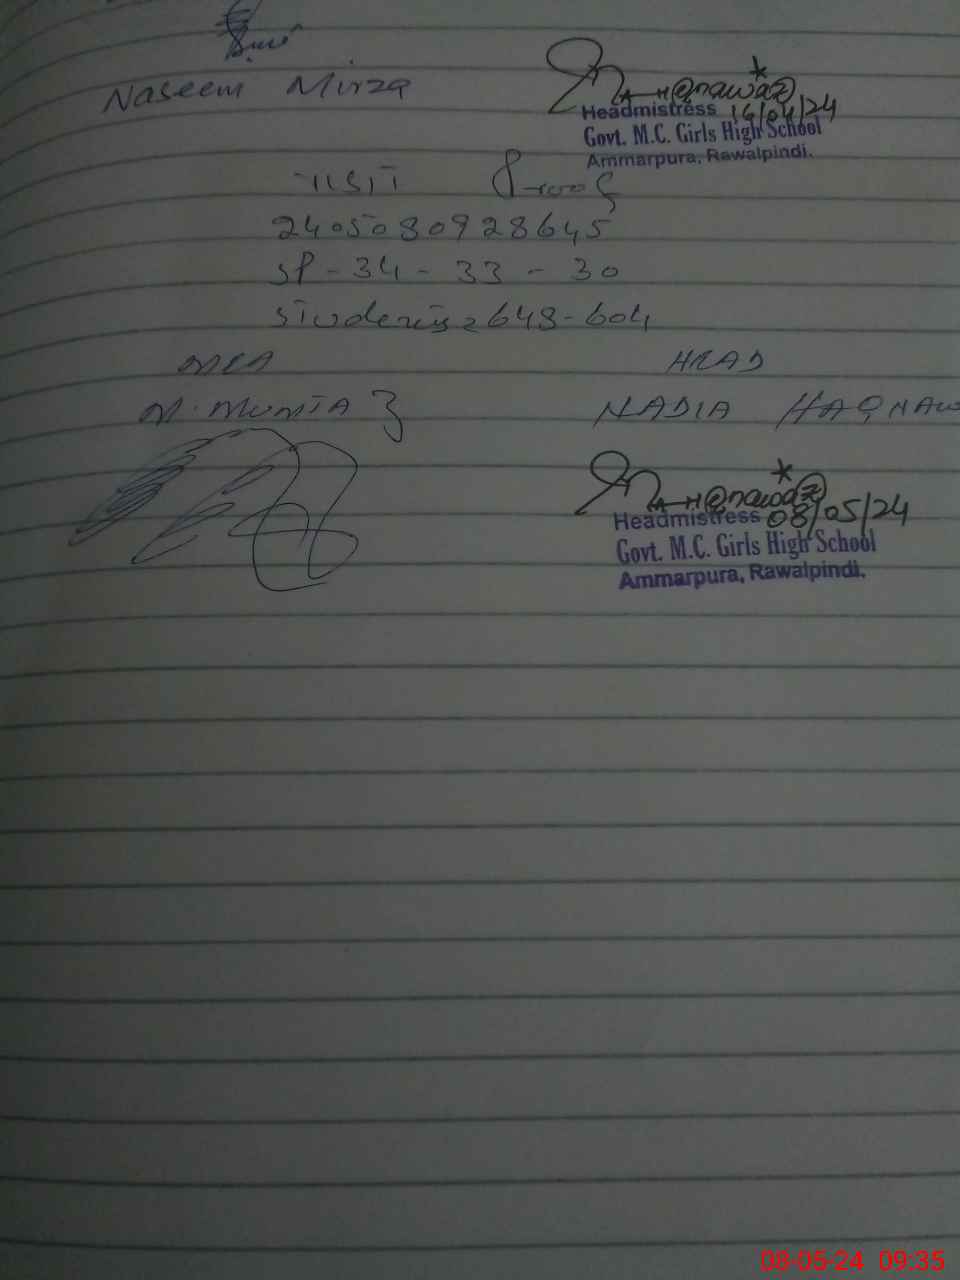 Naseem Mirza
H@qnawaz
Headmistress 16/04/24
Govt. M.C. Girls High School
Ammarpura, Rawalpindi.
Visit Proof
2405080928645
SP - 34 - 33 - 30
Students = 648 - 604
MEA HEAD
M. MUMTAZ NADIA HAQNAW
H@qnawaz
Headmistress 08/05/24
Govt. M.C. Girls High School
Ammarpura, Rawalpindi.
08-05-24 09:35